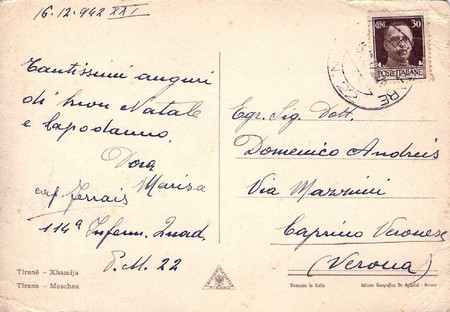 16.12.942 XXI
Tantissimi auguri
di buon Natale
e Capodanno.
Dora
Marisa
114ª Inferm. Quad.
P.M. 22
Tiranë - Xhamija
Tirana - Moschea
TIRANA
CENT. 30
POSTE ITALIANE
22 N.
Egr. Sig. Dott.
Domenico Andreis
Via Mazzini
Caprino Veronese
(Verona)
Stampato in Italia
Istituto Geografico De Agostini - Novara